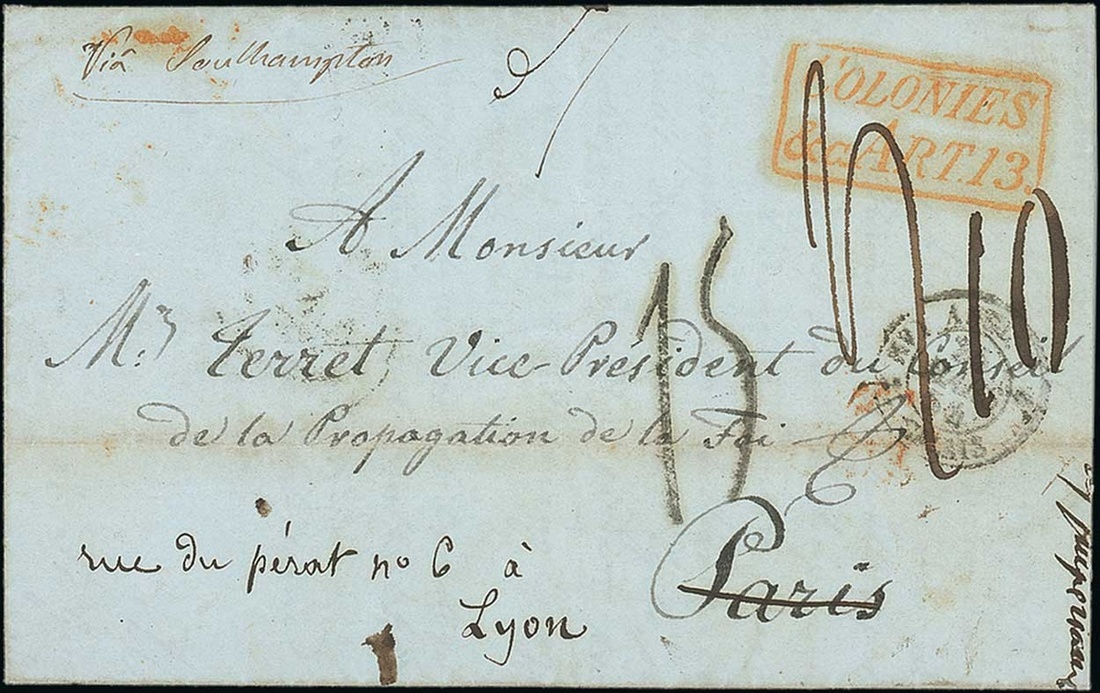 Viâ Southampton
COLONIES
&ca ART. 13.
15
10
A Monsieur
Mr Terret Vice-Président du Conseil
de la Propagation de la Foi
Paris
rue du pérat no 6 à
Lyon